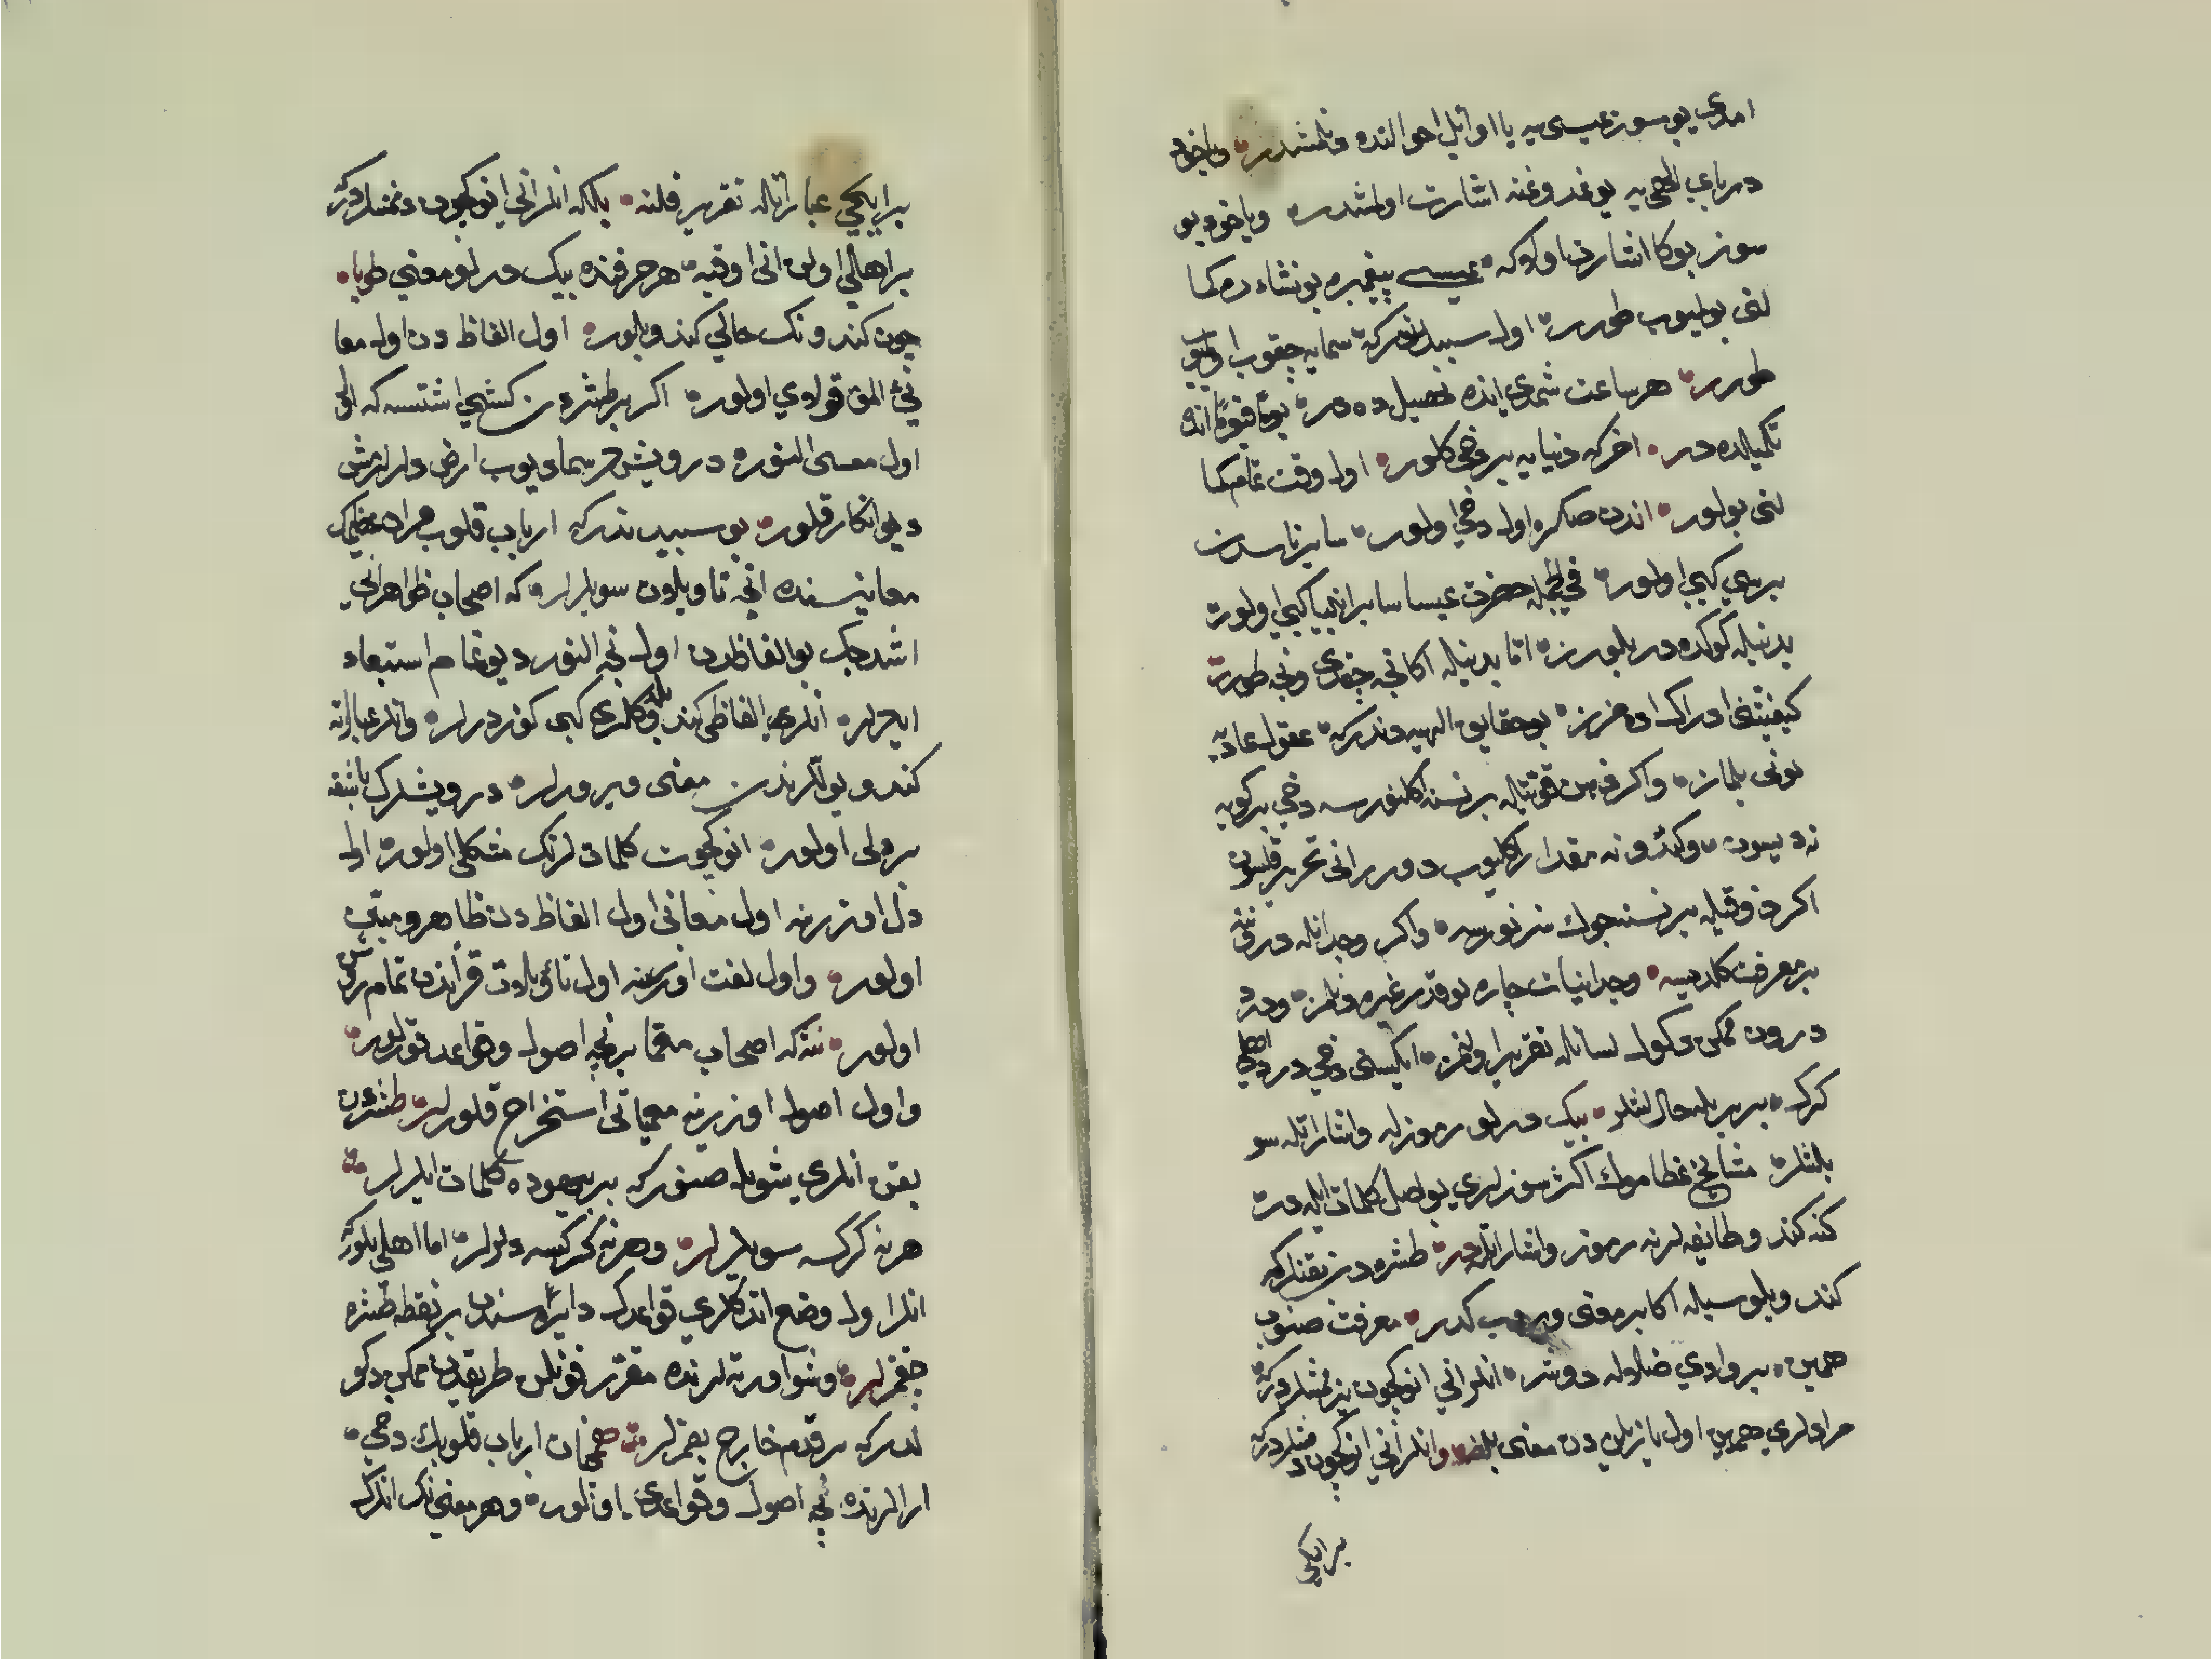 امدی بو سوز عیسی یه یا اوائل احوالنده دنلمشدر ویاخود
دریای الهی یه بوغدوغنه اشارت اولمشدر ویاخود بو
سوز بوکا اشارت اولا که عیسی پیغمبره بو نشاءده کما
لنی بولیوب طورر اول سببدندر که سمایه چقوب اولیوب
طورر هر ساعت شمدی انده تحصیل ده در یوما فیوما انده
تکمیلده در اخر که دنیایه بر دخی کلور اول وقت تمام کما
لنی بولور اندن صکره اول دخی اولور سایر ناسدن
بری کبی اولور فی الجمله حضرت عیسا سایر انبیا کبی اولور
بدنیله کوکده در بلورز اما بدنیله اکا نجه چقدی ونجه طورر
کیفیتنی ادراک ادمزز بو حقایق الهیه دندر که عقول عادیه
بونی بلماز واکر ذهن قوتیله بر نسنه اکلنورسه دخی بر کوبه
نه دیسون وکندونه مقدار اکلیوب دورر انی تحریر قلسون
اکر ذوقیله بر نسنه جوك سزنورسه واکر وجدانله درونینه
بر معرفت کلدیسه وجدانیات چاره یوقدر غیره دنلمز ودرد
درون ممکن دکول لسانله تقریر اولنمز ایکیسنی دخی درد اهلی
کرک بر بریله حاللشلر بیک درلو رموزله واشاراتله سو
یلشلر مشایخ عظامك اکثر سوزلری بو اصل کلمات ایله در
کند کندو طایفه لرنه رموز واشاراتلدر طشره دن بقنلر که
کندو بلوسیله اکا بر معنی ویروب کدر معرفت صنوب
همین بر وادی ضلاله دوشر انلر انی انوکچون یزلمشلردر که
مرادلری همین اول یازیلن دن معنی بلنه وانلر انی انوکچون دیمشلردر که
بر ایکی
بر ایکی عباراتله تقریر قلنه بلکه انلر انی انوکچون دیمشلردر که
بر اهلی اولن انی اوقیه هر حرفنده بیک درلو معنی طویا
چون کندونک حالی کندو بلور اول الفاظ دن اول معا
نئ المق قولای اولور اکر بر طشره دن کشی اشتسه که الی
اول معنی النوره درویش خر سماد یوب ارض دلرلرمش
دیو انکار قلور بو سببدندر که ارباب قلوب قران عظیمک
معانیسنده انجه تاویلات سویلرلر که اصحاب ظواهر انی
اشدجک بو الفاظدن اول نجه النور دیو تمام استبعاد
ایدرلر انلری الفاظی کند بلدوکلری کبی کوزدرلر وانلر عباراته
کندو یولرندن معنی ویرورلر درویشلرک باشقه
بر دلی اولور انوکچون کلمات لرنک مشکلی اولور اول
دل اوزرینه اول معانی اول الفاظ دن ظاهر ومبین
اولور واول لغت اوزرینه اول تاویلات قراندن تمام روشن
اولور نتکه اصحاب معما بر نجه اصول وقواعد قورلور
واول اصول اوزرینه معمیاتی استخراج قلورلر طشره دن
بقن انلری شویله صنور که بر بیهوده کلمات ایلرلر
هر نه کرکسه سویلرلر وهر نه کرکسه دلرلر اما اهلی بلور که
انلر اول وضع اتدکلری قواعدک دایره سندن بر نقطه طشره
چقمزلر وشو اورته لرنده مقرر قونلن طریقدن ممکن دکو
لدر که بر قدم خارج بقمزلر همچنان ارباب قلوبك دخی
ارالرنده نجه اصول وقواعدی اولور وهر معنی نک انلرک